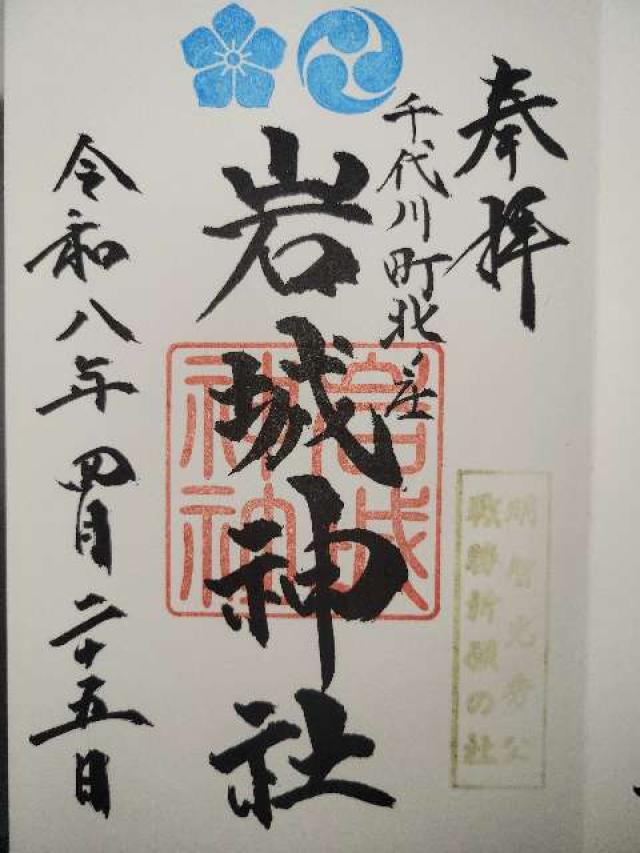 奉拝
千代川町北ノ庄
岩城神社
令和八年四月二十五日
岩城
神社
明智光秀公
戦勝祈願の社